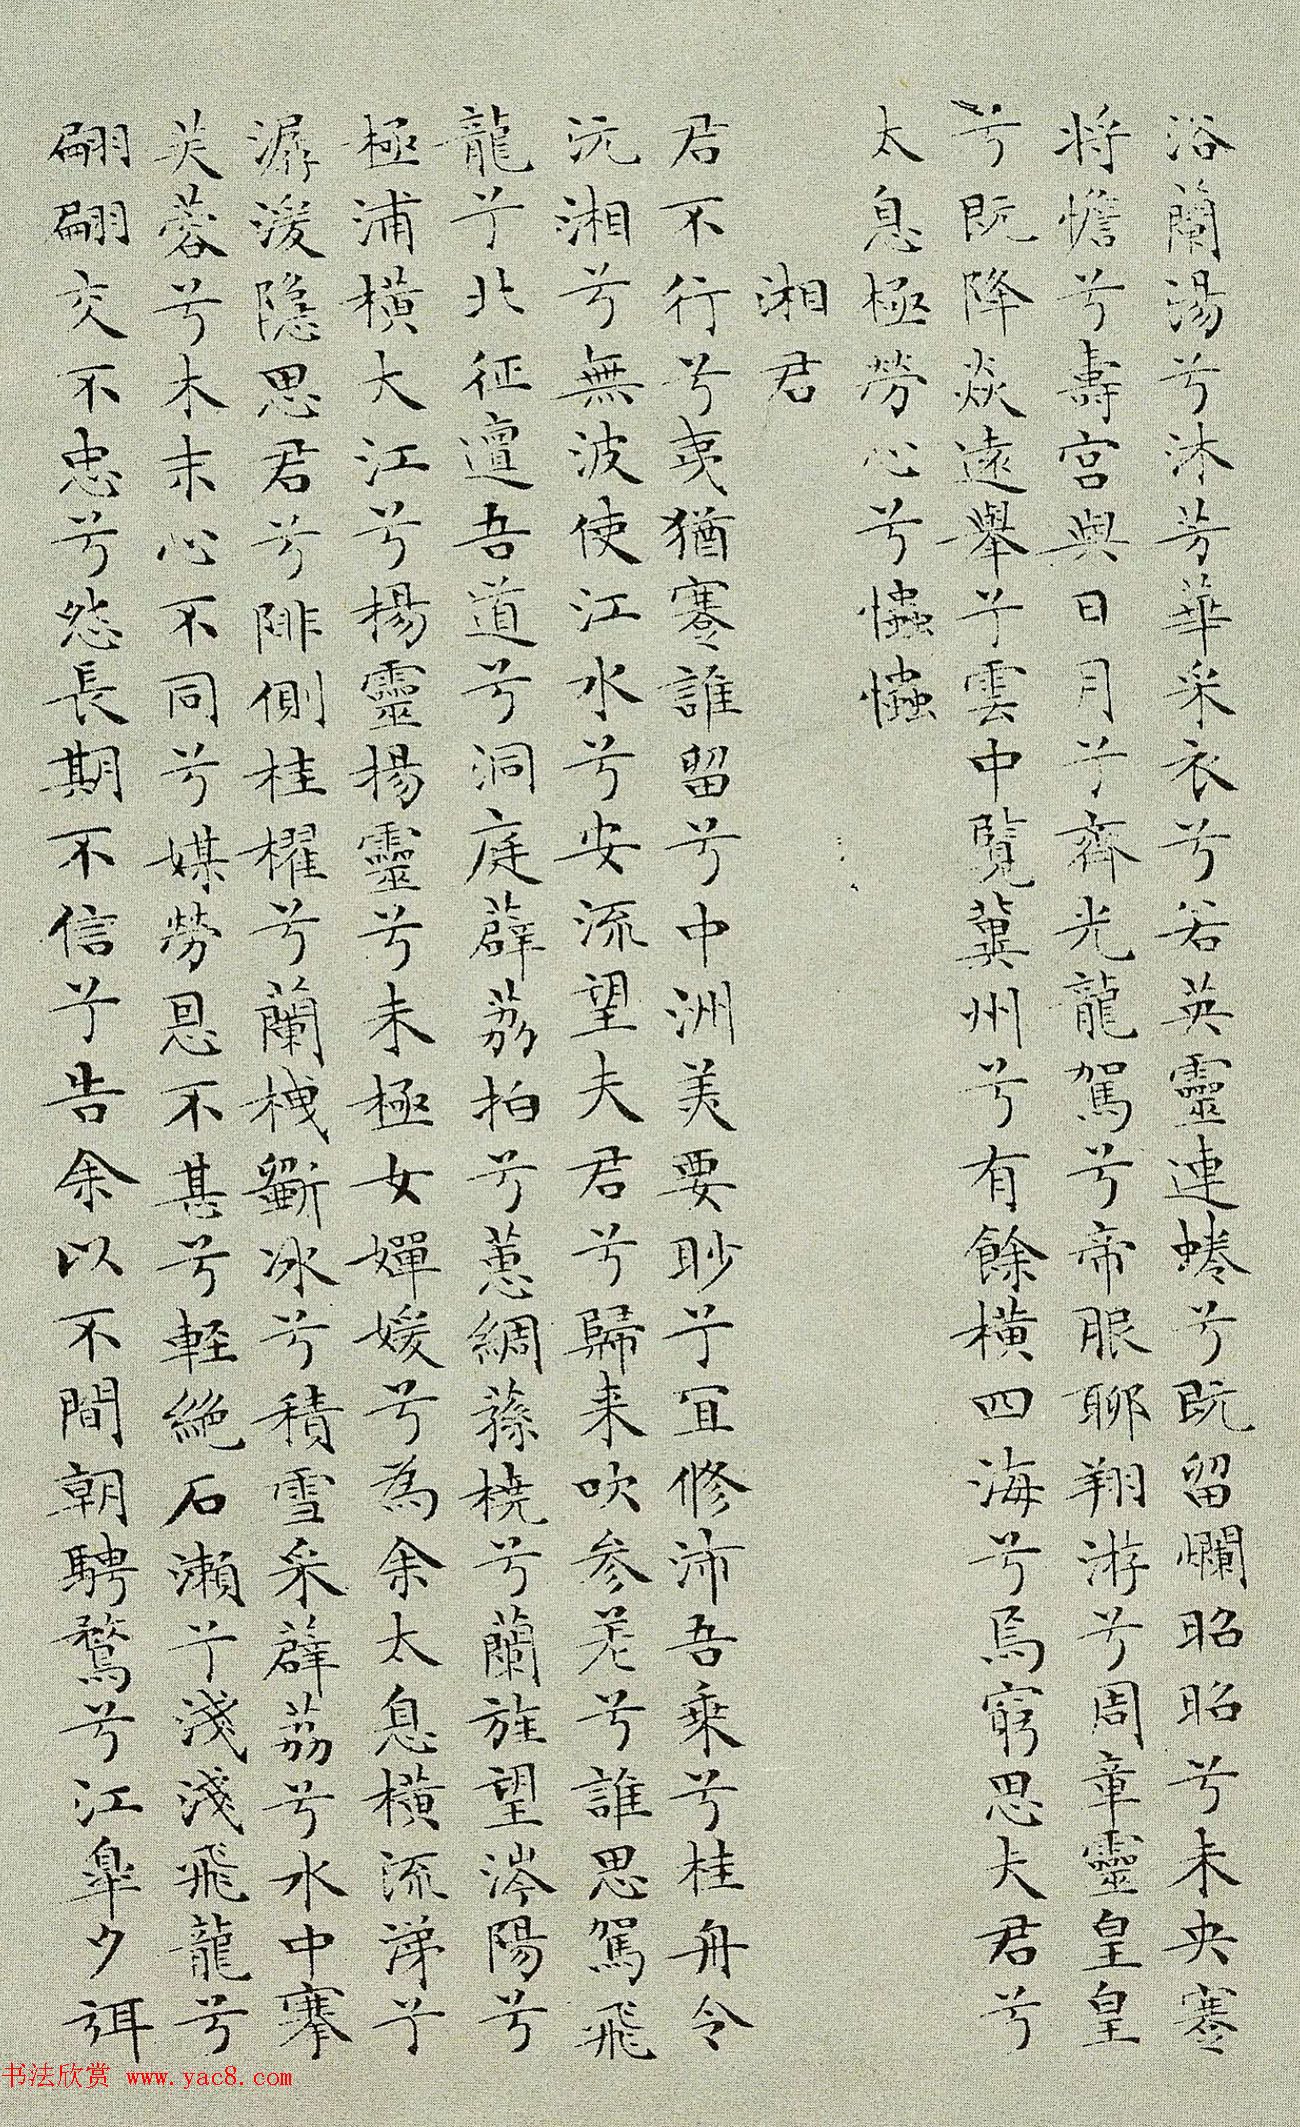 浴蘭湯兮沐芳華采衣兮若英靈連蜷兮既留爛昭昭兮未央蹇
將憺兮壽宮與日月兮齊光龍駕兮帝服聊翔游兮周章靈皇皇
兮既降焱遠舉兮雲中覽冀州兮有餘橫四海兮焉窮思夫君兮
太息極勞心兮忡忡
湘君
君不行兮夷猶蹇誰留兮中洲美要眇兮宜修沛吾乘兮桂舟令
沅湘兮無波使江水兮安流望夫君兮歸來吹參差兮誰思駕飛
龍兮北征邅吾道兮洞庭薜荔拍兮蕙綢蓀橈兮蘭旌望涔陽兮
極浦橫大江兮揚靈揚靈兮未極女嬋媛兮為余太息橫流涕兮
潺湲隱思君兮陫側桂櫂兮蘭枻斲冰兮積雪采薜荔兮水中搴
芙蓉兮木末心不同兮媒勞恩不甚兮輕絕石瀨兮淺淺飛龍兮
翩翩交不忠兮怨長期不信兮告余以不閒朝騁騖兮江皋夕弭
书法欣赏 www.yac8.com